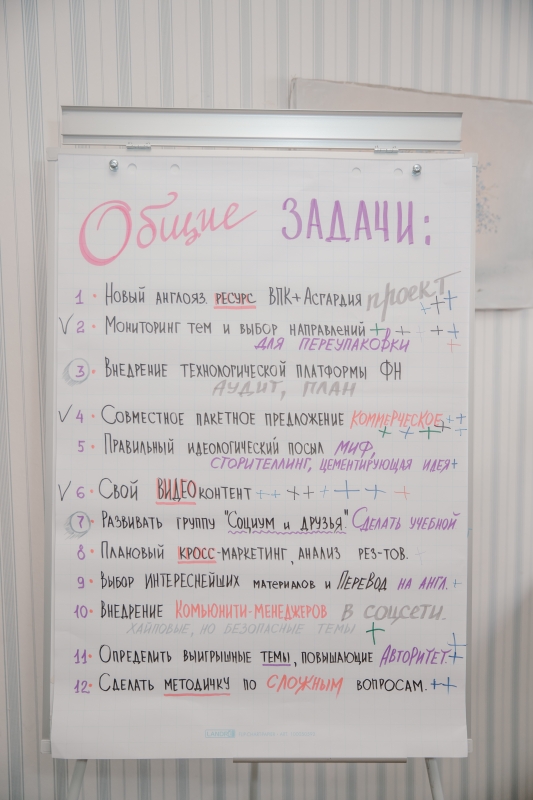 Общие ЗАДАЧИ:
1 • Новый англояз. РЕСУРС ВПК+Асгардия проект +++
✓ 2 • Мониторинг тем и выбор направлений + + + +
для переупаковки +
3 • Внедрение технологической платформы ФН
АУДИТ, ПЛАН
✓ 4 • Совместное пакетное предложение КОММЕРЧЕСКОЕ ++
+ + + +
5 Правильный идеологический посыл МИФ,
СТОРИТЕЛЛИНГ, ЦЕМЕНТИРУЮЩАЯ ИДЕЯ+
✓ 6 • Свой ВИДЕО контент ++ ++ +++ +
7 • Развивать группу "Социум и друзья". Сделать учебной
8 • Плановый КРОСС-маркетинг, анализ рез-тов.
9 • Выбор ИНТЕРЕСНЕЙШИХ материалов и ПЕРЕВОД НА АНГЛ. +
10 • Внедрение Комьюнити-менеджеров в соцсети.
ХАЙПОВЫЕ, НО БЕЗОПАСНЫЕ ТЕМЫ +
11 • Определить выигрышные темы, повышающие Авторитет. ++
12 • Сделать методичку по СЛОЖНЫМ вопросам. ++